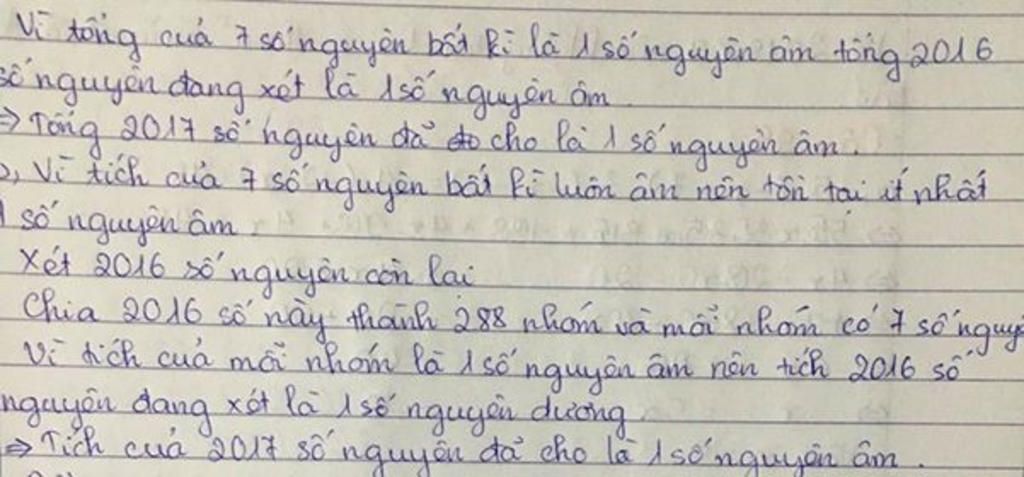 Vì tổng của 7 số nguyên bất kì là 1 số nguyên âm tổng 2016
số nguyên đang xét là 1 số nguyên âm
⇒ Tổng 2017 số nguyên đã cho là 1 số nguyên âm.
, Vì tích của 7 số nguyên bất kì luôn âm nên tồn tại ít nhất
1 số nguyên âm.
Xét 2016 số nguyên còn lại
Chia 2016 số này thành 288 nhóm và mỗi nhóm có 7 số nguy
Vì tích của mỗi nhóm là 1 số nguyên âm nên tích 2016 số
nguyên đang xét là 1 số nguyên dương
⇒ Tích của 2017 số nguyên đã cho là 1 số nguyên âm.